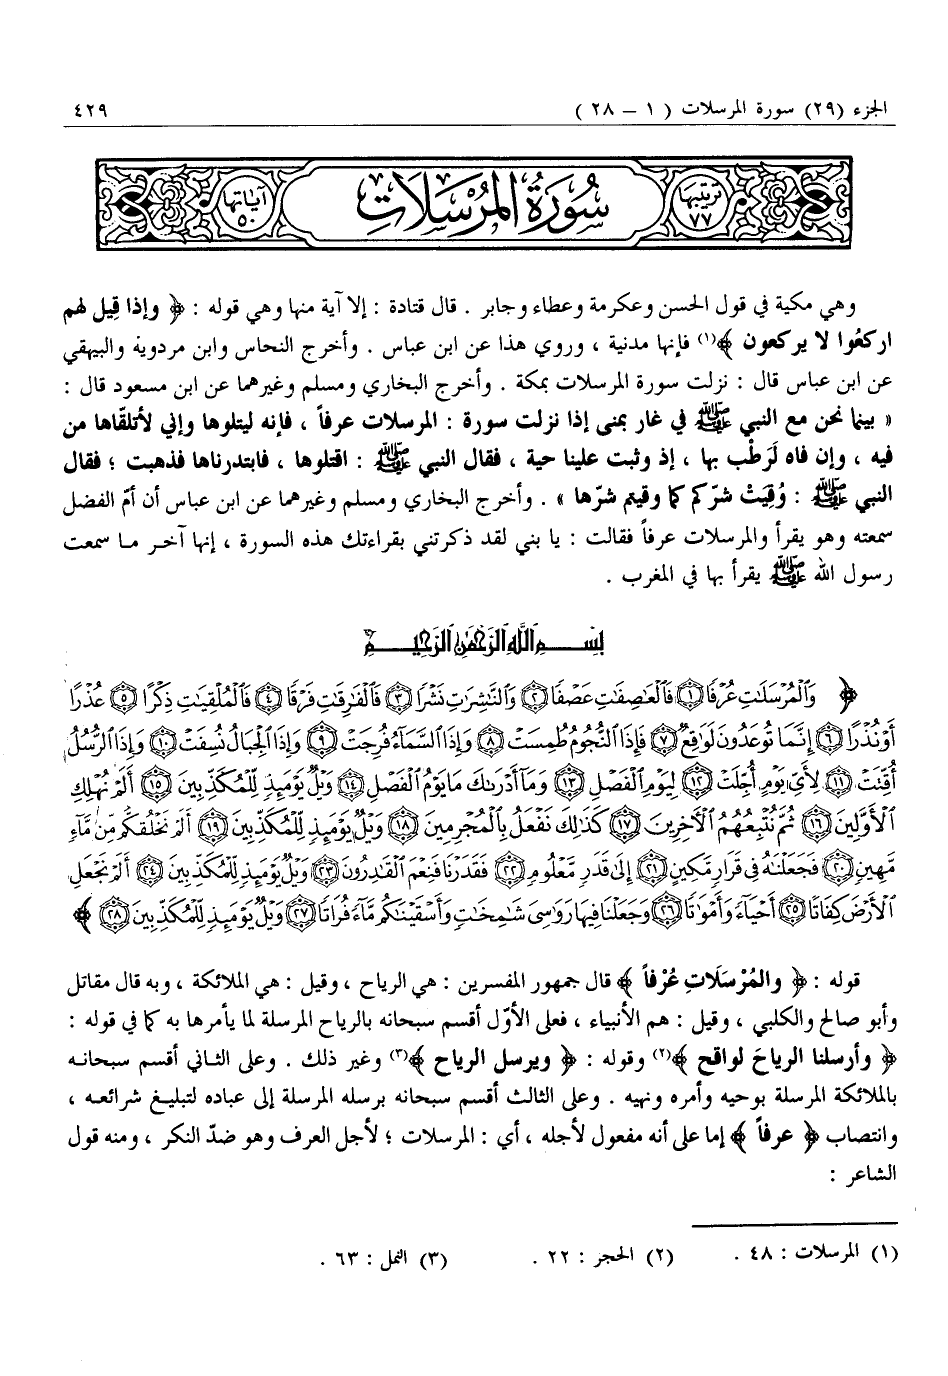 الجزء (٢٩) سورة المرسلات ( ١ – ٢٨ )
٤٢٩
ترتيبها
٧٧
سُورَةُ المُرْسَلَات
آياتها
٥٠
وهي مكية في قول الحسن وعكرمة وعطاء وجابر . قال قتادة : إلا آية منها وهي قوله : ﴿ وإذا قِيل لهم
اركعُوا لا يركعون ﴾(١) فإنها مدنية ، وروي هذا عن ابن عباس . وأخرج النحاس وابن مردويه والبيهقي
عن ابن عباس قال : نزلت سورة المرسلات بمكة . وأخرج البخاري ومسلم وغيرهما عن ابن مسعود قال :
« بينما نحن مع النبي ﷺ في غار بمنى إذا نزلت سورة : المرسلات عرفاً ، فإنه ليتلوها وإني لأتلقّاها من
فيه ، وإن فاه لَرَطْب بها ، إذ وثبت علينا حية ، فقال النبي ﷺ : اقتلوها ، فابتدرناها فذهبت ؛ فقال
النبي ﷺ : وُقِيَتْ شرّكم كما وقيتم شرّها » . وأخرج البخاري ومسلم وغيرهما عن ابن عباس أن أمّ الفضل
سمعته وهو يقرأ والمرسلات عرفاً فقالت : يا بني لقد ذكرتني بقراءتك هذه السورة ، إنها آخر ما سمعت
رسول الله ﷺ يقرأ بها في المغرب .
بِسْــــمِ اللَّهِ الرَّحْمَٰنِ الرَّحِيــــمِ
﴿ وَالْمُرْسَلَاتِ عُرْفًا ١ فَالْعَاصِفَاتِ عَصْفًا ٢ وَالنَّاشِرَاتِ نَشْرًا ٣ فَالْفَارِقَاتِ فَرْقًا ٤ فَالْمُلْقِيَاتِ ذِكْرًا ٥ عُذْرًا
أَوْ نُذْرًا ٦ إِنَّمَا تُوعَدُونَ لَوَاقِعٌ ٧ فَإِذَا النُّجُومُ طُمِسَتْ ٨ وَإِذَا السَّمَاءُ فُرِجَتْ ٩ وَإِذَا الْجِبَالُ نُسِفَتْ ١٠ وَإِذَا الرُّسُلُ
أُقِّتَتْ ١١ لِأَيِّ يَوْمٍ أُجِّلَتْ ١٢ لِيَوْمِ الْفَصْلِ ١٣ وَمَا أَدْرَاكَ مَا يَوْمُ الْفَصْلِ ١٤ وَيْلٌ يَوْمَئِذٍ لِّلْمُكَذِّبِينَ ١٥ أَلَمْ نُهْلِكِ
الْأَوَّلِينَ ١٦ ثُمَّ نُتْبِعُهُمُ الْآخِرِينَ ١٧ كَذَٰلِكَ نَفْعَلُ بِالْمُجْرِمِينَ ١٨ وَيْلٌ يَوْمَئِذٍ لِّلْمُكَذِّبِينَ ١٩ أَلَمْ نَخْلُقكُّم مِّن مَّاءٍ
مَّهِينٍ ٢٠ فَجَعَلْنَاهُ فِي قَرَارٍ مَّكِينٍ ٢١ إِلَىٰ قَدَرٍ مَّعْلُومٍ ٢٢ فَقَدَرْنَا فَنِعْمَ الْقَادِرُونَ ٢٣ وَيْلٌ يَوْمَئِذٍ لِّلْمُكَذِّبِينَ ٢٤ أَلَمْ نَجْعَلِ
الْأَرْضَ كِفَاتًا ٢٥ أَحْيَاءً وَأَمْوَاتًا ٢٦ وَجَعَلْنَا فِيهَا رَوَاسِيَ شَامِخَاتٍ وَأَسْقَيْنَاكُم مَّاءً فُرَاتًا ٢٧ وَيْلٌ يَوْمَئِذٍ لِّلْمُكَذِّبِينَ ٢٨ ﴾
قوله : ﴿ والمُرْسَلَاتِ عُرْفاً ﴾ قال جمهور المفسرين : هي الرياح ، وقيل : هي الملائكة ، وبه قال مقاتل
وأبو صالح والكلبي ، وقيل : هم الأنبياء ، فعلى الأوّل أقسم سبحانه بالرياح المرسلة لما يأمرها به كما في قوله :
﴿ وأرسلنا الرياحَ لواقح ﴾(٢) وقوله : ﴿ ويرسل الرياح ﴾(٣) وغير ذلك . وعلى الثاني أقسم سبحانه
بالملائكة المرسلة بوحيه وأمره ونهيه . وعلى الثالث أقسم سبحانه برسله المرسلة إلى عباده لتبليغ شرائعه ،
وانتصاب ﴿ عرفاً ﴾ إما على أنه مفعول لأجله ، أي : المرسلات ؛ لأجل العرف وهو ضدّ النكر ، ومنه قول
الشاعر :
(١) المرسلات : ٤٨ .
(٢) الحجر : ٢٢ .
(٣) النمل : ٦٣ .